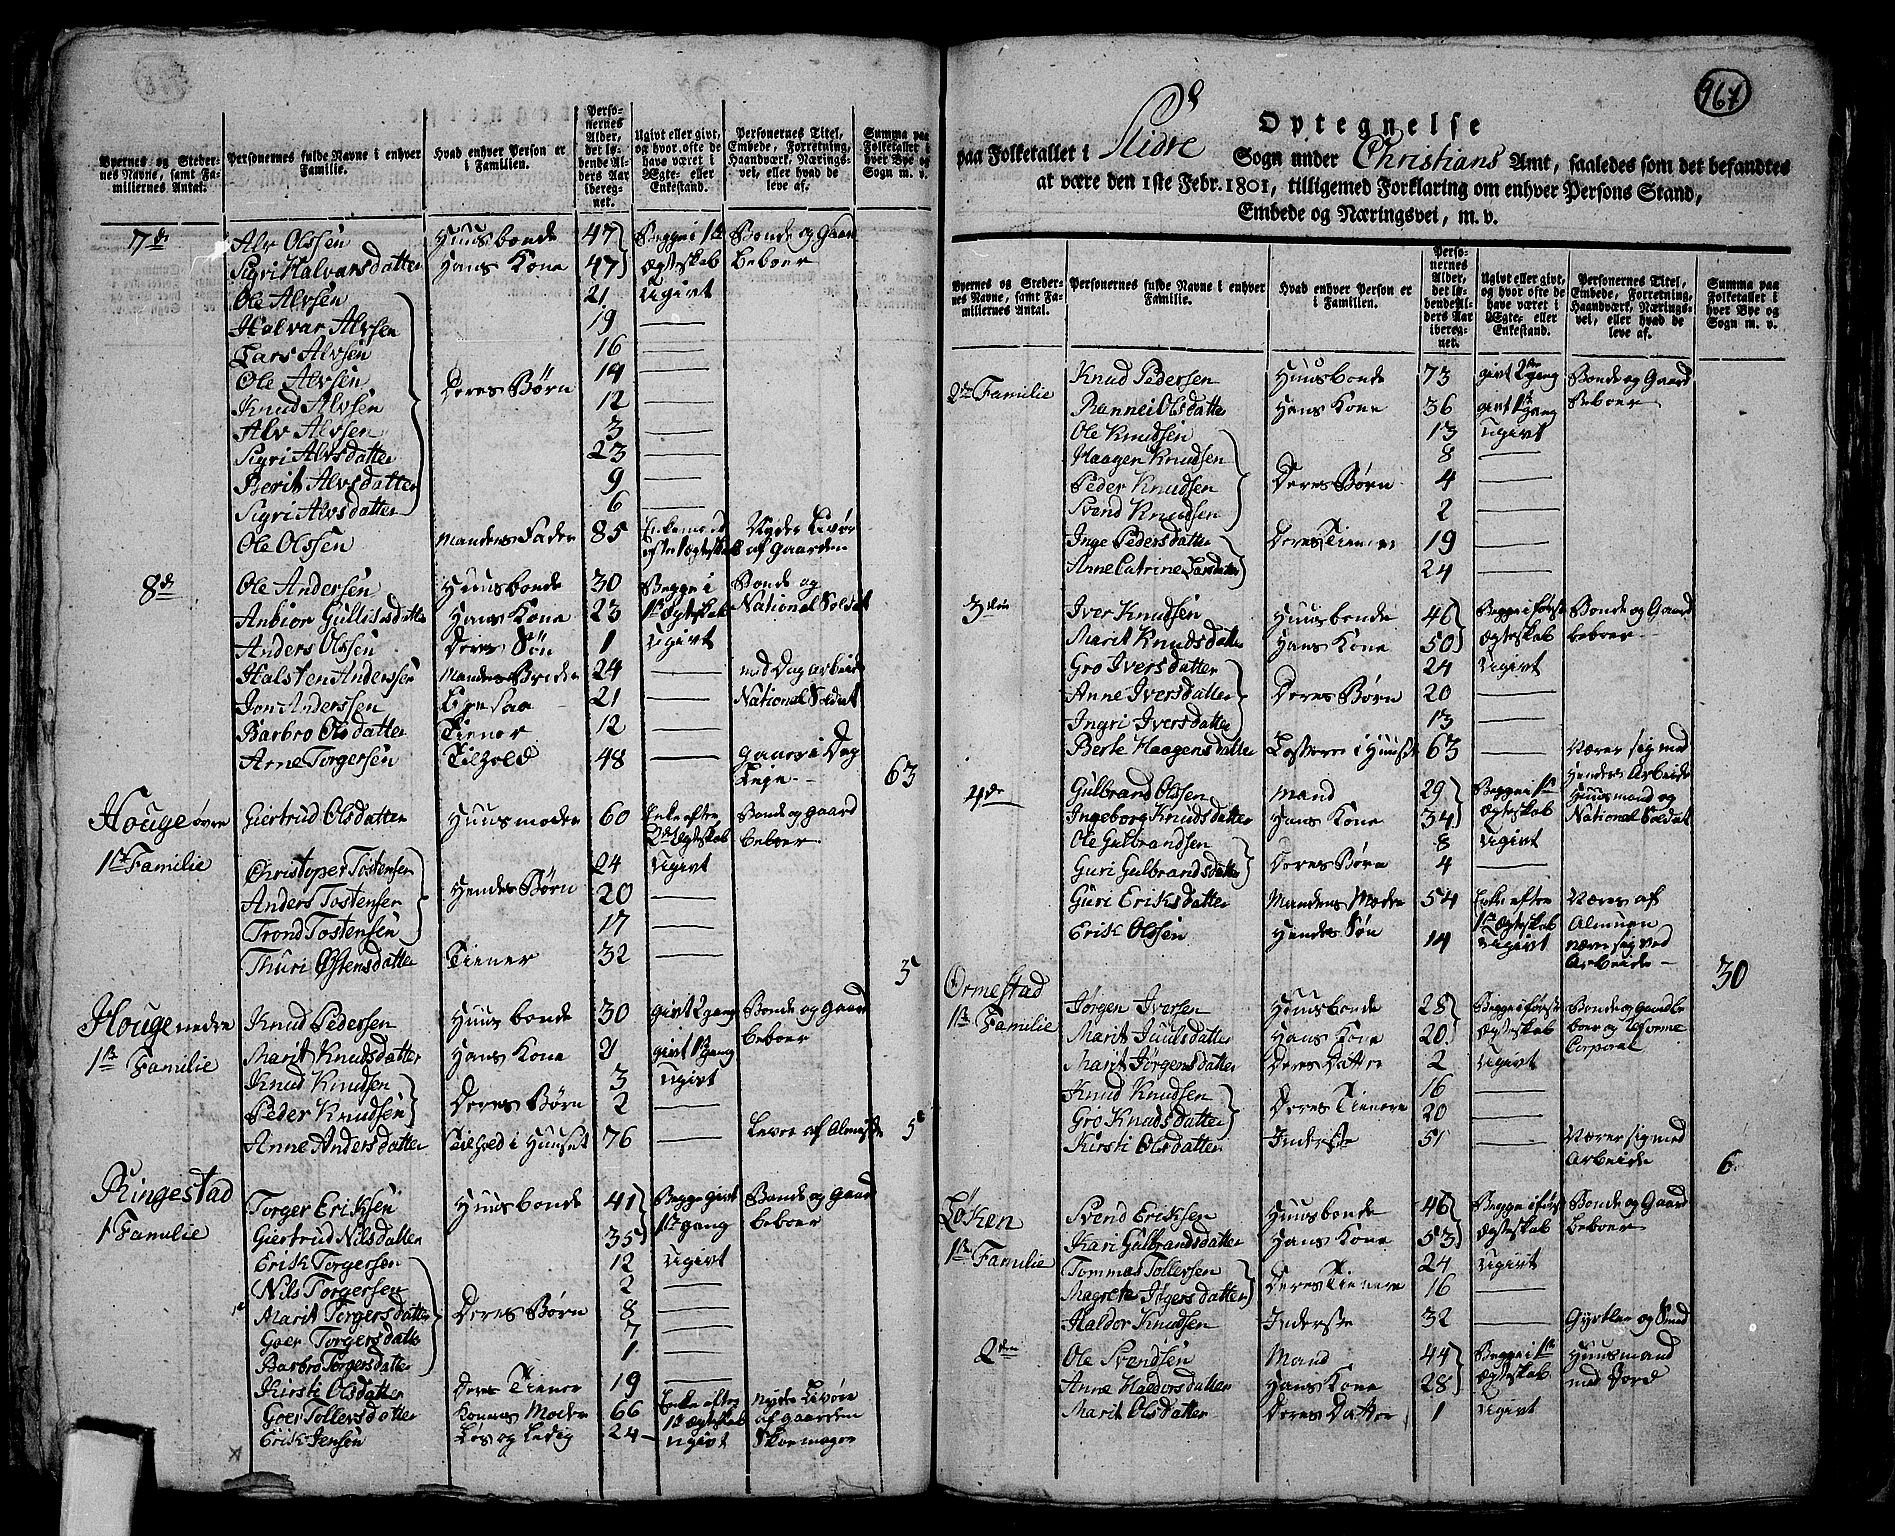 Byernes og Stedernes Navne, samt Familiernes Antal. | Personernes fulde Navne i enhver Familie. | Hvad enhver Person er i Familien. | Personernes Alder, det løbende Alders Aar iberegnet. | Ugivt eller givt, og hvor ofte de have været i Ægte- eller Enkestand. | Personernes Titel, Embede, Forretning, Haandværk, Næringsvei, eller hvad de leve af. | Summa paa Folketallet i hver Bye og Sogn m. v.
7de Alv Olssen Huusbonde 47 Begge i 1te Bonde og Gaard
Sigri Halvarsdatter Hans Kone 47 Ægteskab beboer
Ole Alvsen 21 Ugivt
Halvar Alvsen 19 —
Lars Alvsen 16 —
Ole Alvsen Deres Børn 14 —
Knud Alvsen 12 —
Alv Alvsen 3 —
Sigri Alvsdatter 23 —
Berit Alvsdatter 9 —
Sigri Alvsdatter 6 —
Ole Olssen Mandens Fader 85 Enkemand Nyder Livøre
efter Ægteskab af Gaarden
8de Ole Andersen Huusbonde 30 Begge i Bonde og
Anbior Gullisdatter Hans Kone 23 1te Ægteskab National Soldat
Anders Olssen Deres Søn 1 Ugivt
Halsten Anderssen Mandens Brødre 24 — med Dag arbeide
Jon Anderssen 21 — National Soldat
Barbro Olsdatter Tiener 12 —
Arne Torgersen Tilhold 48 — gaaer i Dag
Leje 63
Houge øvre Giertrud Olsdatter Huusmoder 60 Enke efter Bonde og gaard
2det Ægteskab beboer
1te Familie Christoper Tostensen 24 Ugivt
Anders Tostensen Hendes Børn 20 —
Trond Tostensen 17 —
Thuri Østensdatter Tiener 32 — 5
Houge nedre Knud Pedersen Huusbonde 30 givt 2 gang Bonde og Gaard
1te Familie Marit Knudsdatter Hans Kone 21 givt 1te gang beboer
Knud Knudsen 3 Ugivt
Peder Knudsen Deres Børn 2 —
Anne Andersdatter Tilhold i Huuset 76 — Lever af Almisse 5
Ringestad Torger Eriksen Huusbonde 41 Begge givt Bonde og Gaard
1 Familie Giertrud Nilsdatter 35 1te gang beboer
Erik Torgersen 12 Ugivt
Nils Torgersen 2 —
Marit Torgersdatter Deres Børn 8 —
Goer Torgersdatter 7 —
Barbro Torgersdatter 1 —
Kirsti Olsdatter Deres Tiener 19 —
Goer Tollevsdatter Konens Moder 66 Enke efter nyder Livøre
1te Ægteskab af gaarden
Erik Jensen Løs og Ledig 24 ugivt Skoemager
967
Optegnelse
paa Folketallet i Slidre Sogn under Christians Amt, saaledes som det befandtes
at være den 1ste Febr. 1801, tilligemed Forklaring om enhver Persons Stand,
Embede og Næringsvei, m. v.
Byernes og Stedernes Navne, samt Familiernes Antal. | Personernes fulde Navne i enhver Familie. | Hvad enhver Person er i Familien. | Personernes Alder, det løbende Alders Aar iberegnet. | Ugivt eller givt, og hvor ofte de have været i Ægte- eller Enkestand. | Personernes Titel, Embede, Forretning, Haandværk, Næringsvei, eller hvad de leve af. | Summa paa Folketallet i hver Bye og Sogn m. v.
2den Familie Knud Pedersen Huusbonde 73 givt 2den gang Bonde og Gaard
Rannei Olsdatter Hans Kone 36 givt 1te gang beboer
Ole Knudsen 13 Ugivt
Haagen Knudsen 8 —
Peder Knudsen Deres Børn 4 —
Svend Knudsen 2 —
Inge Pedersdatter Deres Tiener 19 —
Anne Catrine Larsdatter 24 —
3die Iver Knudsen Huusbonde 46 Begge i første Bonde og Gaard
Marit Knudsdatter Hans Kone 50 Ægteskab beboer
Gro Iversdatter 24 Ugivt
Anne Iversdatter Deres Børn 20 —
Ingri Iversdatter 13 —
Berte Haagensdatter i Huuset 63 — Nærer sig med
Hendes Arbeide
4de Gulbrand Olssen Mand 29 Begge i 1te Huusmand og
Ingeborg Knudsdatter Hans Kone 34 Ægteskab National Soldat
Ole Gulbrandsen 8 Ugivt
Guri Gulbrandsdatter Deres Børn 4 —
Guri Eriksdatter Mandens Moder 54 Enke efter Nærer af
1te Ægteskab Almuen
Erik Olssen Hendes Søn 14 Ugivt nærer sig ved
Arbeide 30
Ormestad Jørgen Iversen Huusbonde 28 Begge i første Bonde og Gaardbe
1te Familie Marit Juulsdatter Hans Kone 20 Ægteskab boer og
Marit Jørgensdatter Deres Datter 2 Ugivt Corporal
Knud Knudsen 16 —
Gro Knudsdatter Deres Tienere 20 —
Kirsti Olsdatter Inderste 51 — Nærer sig med
Arbeide 6
Løken Svend Eriksen Huusbonde 46 Begge i første Bonde og Gaard
Kari Gulbrandsdatter Hans Kone 53 Ægteskab beboer
1te Familie Tommas Tollevsen 24 Ugivt
Magrete Isgersdatter Deres Tienere 16 —
Haldor Knudsen Inderste 32 — Gyrtler og Smed
2den Ole Svendsen Mand 44 Begge i 1te Huusmand
Anne Haldorsdatter Hans Kone 28 Ægteskab med Jord
Marit Olsdatter Deres Datter 1 Ugivt